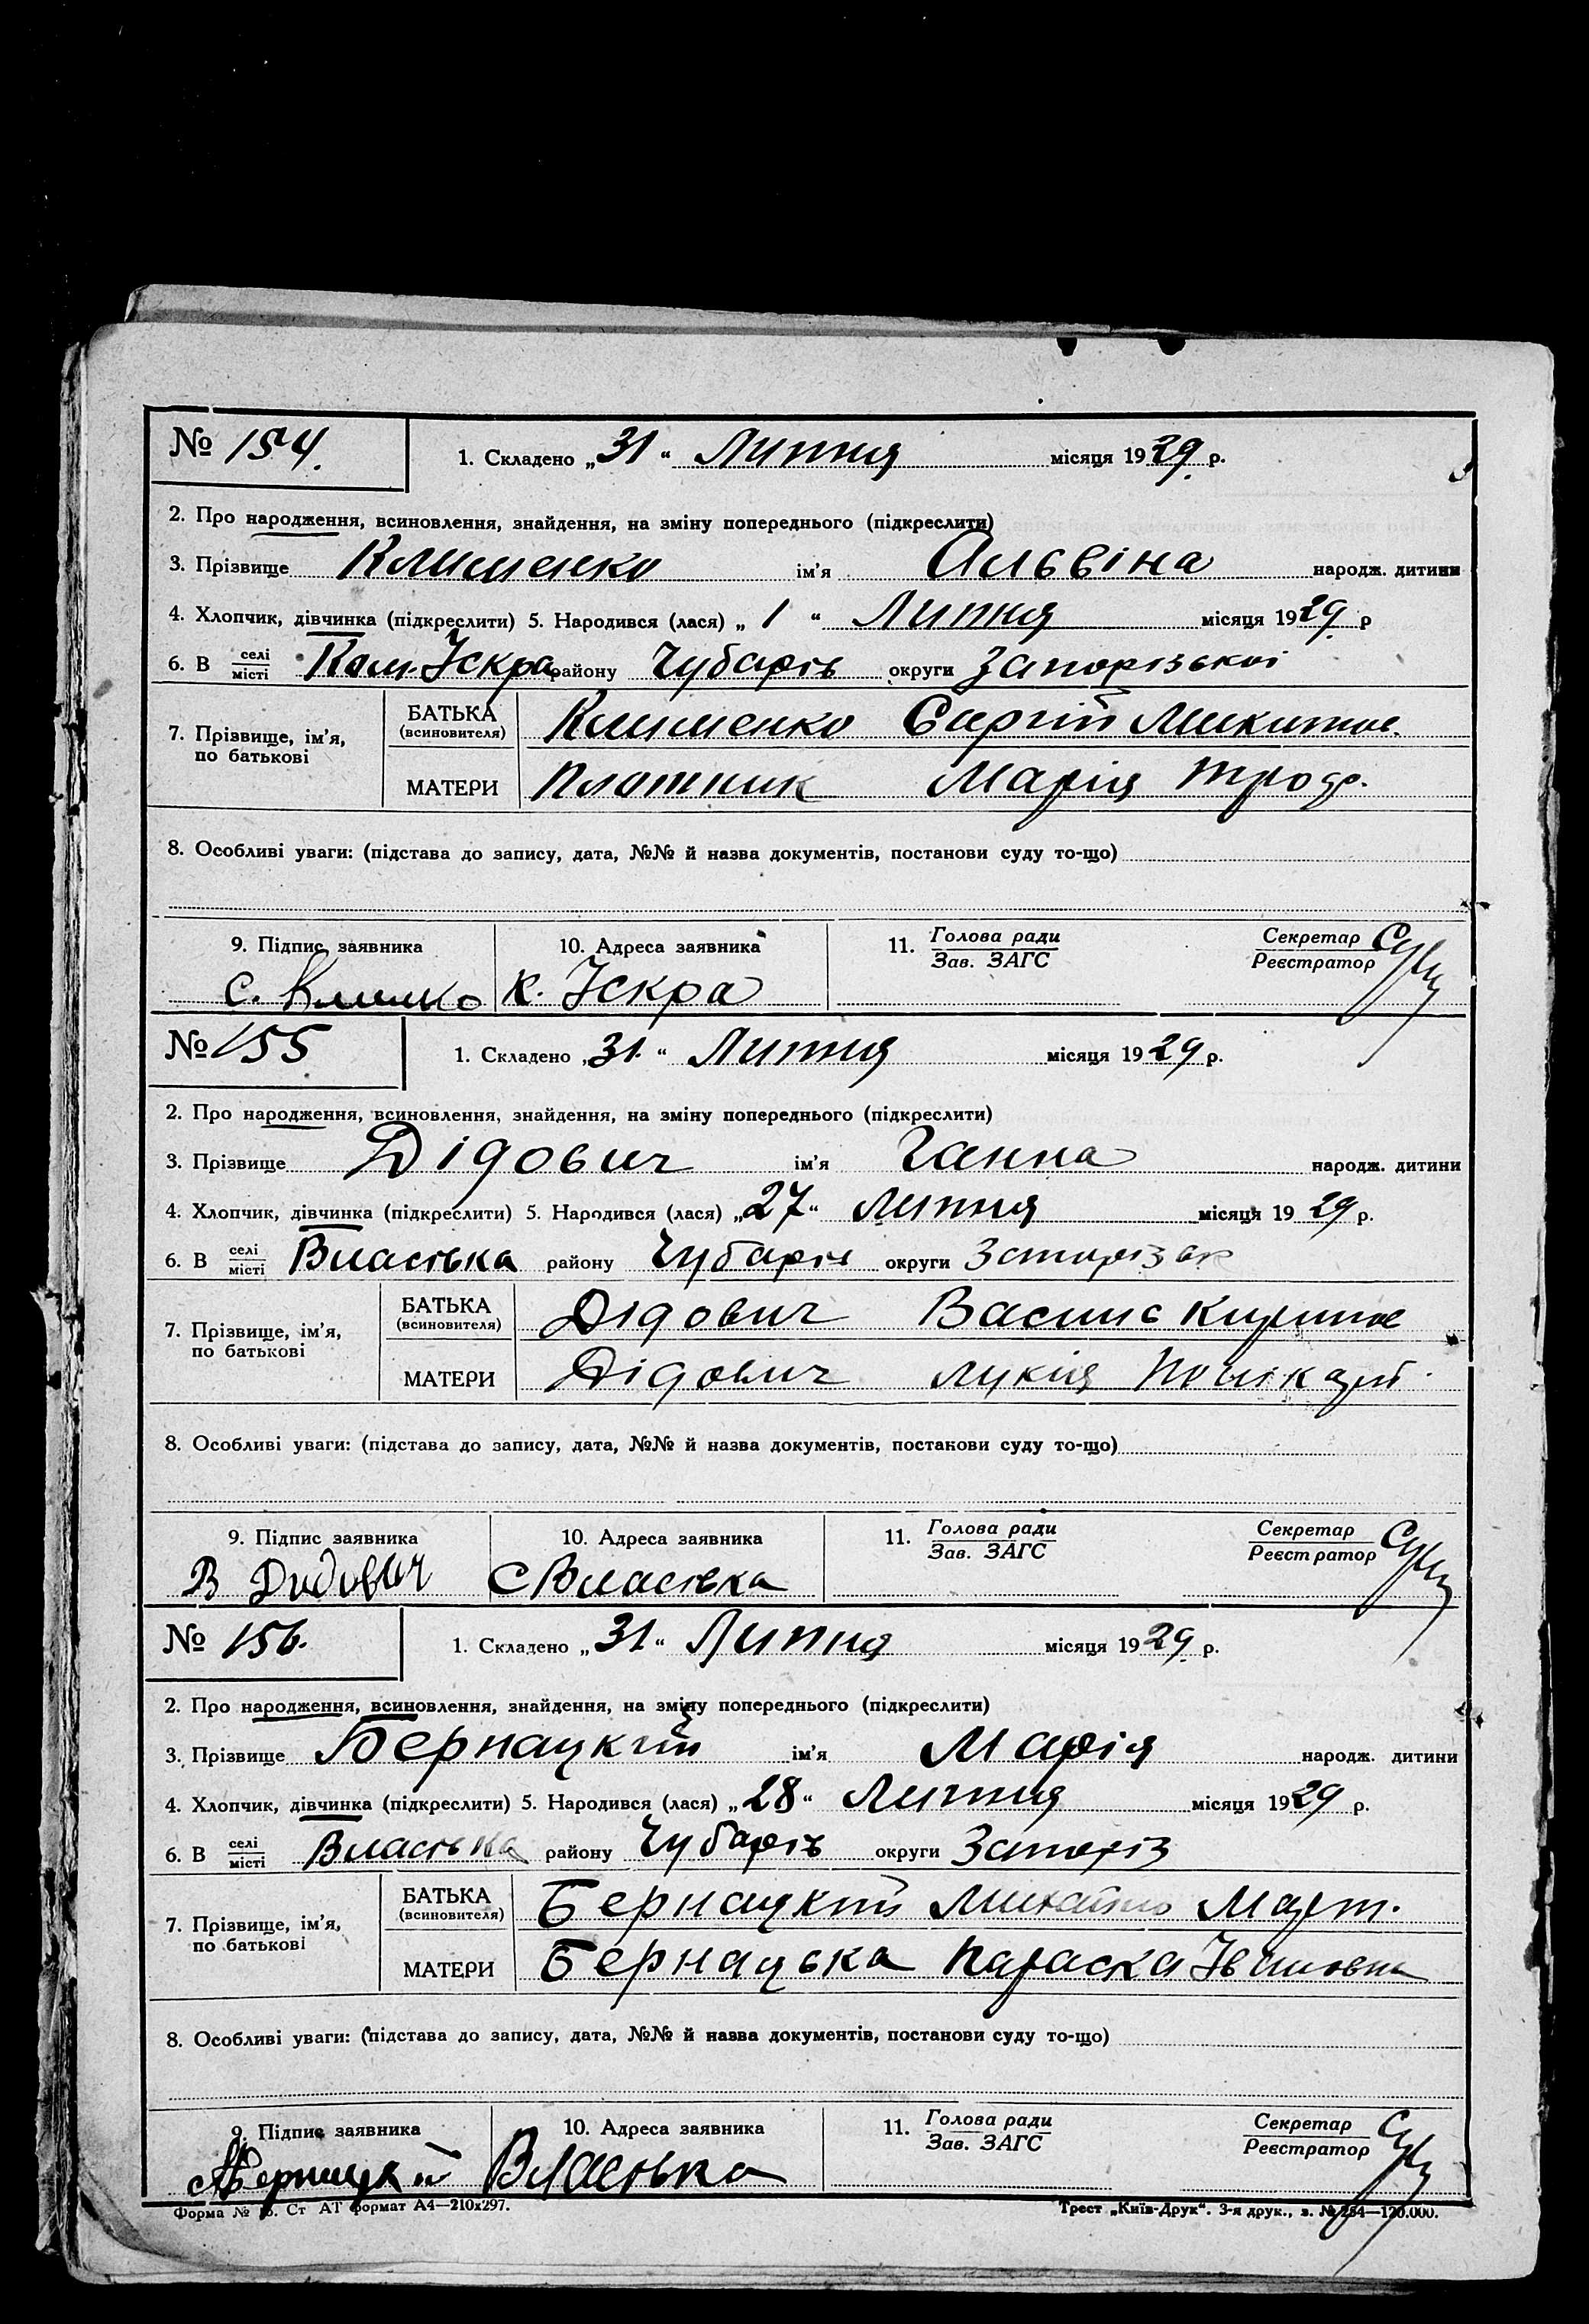 № 154. 1. Складено „31“ Липня місяця 1929 р.
2. Про народження, всиновлення, знайдення, на зміну попереднього (підкреслити)
3. Прізвище Клименко ім’я Альвіна народж. дитини
4. Хлопчик, дівчинка (підкреслити) 5. Народився (лася) „1“ Липня місяця 1929 р
6. В селі місті Ком. Іскра району Чубарів округи Запорізької
7. Прізвище, ім’я, по батькові
БАТЬКА (всиновителя) Клименко Сергій Микитов.
МАТЕРИ Плотник Марія Трод.
8. Особливі уваги: (підстава до запису, дата, №№ й назва документів, постанови суду то-що)
9. Підпис заявника 10. Адреса заявника 11. Голова ради Зав. ЗАГС Секретар Реєстратор
с. к. Іскра
№ 155 1. Складено „31.“ Липня місяця 1929 р.
2. Про народження, всиновлення, знайдення, на зміну попереднього (підкреслити)
3. Прізвище Дідович ім’я Ганна народж. дитини
4. Хлопчик, дівчинка (підкреслити) 5. Народився (лася) „27“ Липня місяця 1929 р.
6. В селі місті Власівка району Чубарів округи Запорізьк
7. Прізвище, ім’я, по батькові
БАТЬКА (всиновителя) Дідович Василь Кирилов
МАТЕРИ Дідович Лукія Полікарп.
8. Особливі уваги: (підстава до запису, дата, №№ й назва документів, постанови суду то-що)
9. Підпис заявника 10. Адреса заявника 11. Голова ради Зав. ЗАГС Секретар Реєстратор
В Дидович с Власівка
№ 156. 1. Складено „31“ Липня місяця 1929 р.
2. Про народження, всиновлення, знайдення, на зміну попереднього (підкреслити)
3. Прізвище Бернацкий ім’я Марія народж. дитини
4. Хлопчик, дівчинка (підкреслити) 5. Народився (лася) „28“ Липня місяця 1929 р.
6. В селі місті Власівка району Чубарів округи Запоріз
7. Прізвище, ім’я, по батькові
БАТЬКА (всиновителя) Бернацкий Михайло Март.
МАТЕРИ Бернацька Параска Івановна
8. Особливі уваги: (підстава до запису, дата, №№ й назва документів, постанови суду то-що)
9. Підпис заявника 10. Адреса заявника 11. Голова ради Зав. ЗАГС Секретар Реєстратор
Власівка
Форма № Ст АТ формат А4—210х297. Трест „Київ-Друк“. 3-я друк., з. № 254—120.000.